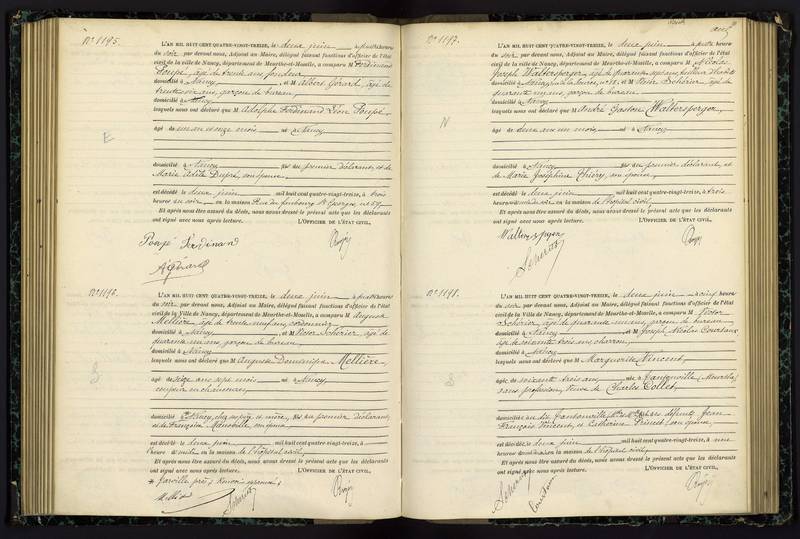 N° 1195.
L'AN MIL HUIT CENT QUATRE-VINGT-TREIZE, le deux juin à quatre heures
du soir par devant nous, Adjoint au Maire, délégué faisant fonctions d'officier de l'état
civil de la ville de Nancy, département de Meurthe-et-Moselle, a comparu M Ferdinand
Poupé, âgé de trente ans, fondeur
domicilié à Nancy, et M Albert Gérard, âgé de
trente six ans, garçon de bureau,
domicilié à Nancy
lesquels nous ont déclaré que M Adolphe Ferdinand Léon Poupé,
âgé de un an et onze mois, né à Nancy
domicilié à Nancy, fils du premier déclarant, et de
Marie Dupré, son épouse,
est décédé le deux juin mil huit cent quatre-vingt-treize, à trois
heures du soir, en la maison Rue du faubourg St Georges, n° 59.
Et après nous être assuré du décès, nous avons dressé le présent acte que les déclarants
ont signé avec nous après lecture. L'OFFICIER DE L'ÉTAT CIVIL,
E
Poupé Ferdinand
A Gérard
N° 1196.
L'AN MIL HUIT CENT QUATRE-VINGT-TREIZE, le deux juin à quatre heures
du soir par devant nous, Adjoint au Maire, délégué faisant fonctions d'officier de l'état
civil de la Ville de Nancy, département de Meurthe-et-Moselle, a comparu M Auguste
Mellière, âgé de trente neuf ans, cordonnier
domicilié à Nancy, et M Victor Schérier, âgé de
quarante un ans, garçon de bureau,
domicilié à Nancy
lesquels nous ont déclaré que M Auguste Dominique Mellière,
âgé de seize ans sept mois né à Nancy
domicilié à Nancy, chez ses père et mère, fils du premier déclarant,
et de Françoise son épouse
est décédé le deux juin mil huit cent quatre-vingt-treize, à
heure en la maison de l'hôpital civil,
Et après nous être assuré du décès, nous avons dressé le présent acte que les déclarants
ont signé avec nous après lecture. L'OFFICIER DE L'ÉTAT CIVIL,
N° 1197.
L'AN MIL HUIT CENT QUATRE-VINGT-TREIZE, le deux juin à quatre heures
du soir par devant nous, Adjoint au Maire, délégué faisant fonctions d'officier de l'état
civil de la ville de Nancy, département de Meurthe-et-Moselle, a comparu M Nicolas
Joseph Waltersperger, âgé de quarante sept ans,
domicilié à Nancy, et M Victor Schérier, âgé de
quarante un ans, garçon de bureau,
domicilié à Nancy
lesquels nous ont déclaré que M André Gaston Waltersperger,
âgé de deux ans un mois, né à Nancy
domicilié à Nancy, fils du premier déclarant, et
de Marie Joséphine Thiéry, son épouse,
est décédé le deux juin mil huit cent quatre-vingt-treize, à trois
heures du soir en la maison de l'hôpital civil,
Et après nous être assuré du décès, nous avons dressé le présent acte que les déclarants
ont signé avec nous après lecture. L'OFFICIER DE L'ÉTAT CIVIL,
N
N° 1198.
L'AN MIL HUIT CENT QUATRE-VINGT-TREIZE, le deux juin à cinq heures
du soir par devant nous, Adjoint au Maire, délégué faisant fonctions d'officier de l'état
civil de la Ville de Nancy, département de Meurthe-et-Moselle, a comparu M Victor
Schérier, âgé de quarante un ans, garçon de bureau
domicilié à Nancy, et M Joseph Nicolas Constans
âgé de soixante trois ans, charron,
domicilié à Nancy
lesquels nous ont déclaré que M Marguerite Vincent,
âgée de soixante trois ans née à Fantonville (Meurthe)
sans profession, veuve de Charles Collet,
domiciliée au dit Fantonville, fille des défunts Jean
François Vincent, et Catherine son épouse,
est décédée le deux juin mil huit cent quatre-vingt-treize, à une
heure en la maison de l'hôpital civil,
Et après nous être assuré du décès, nous avons dressé le présent acte que les déclarants
ont signé avec nous après lecture. L'OFFICIER DE L'ÉTAT CIVIL,